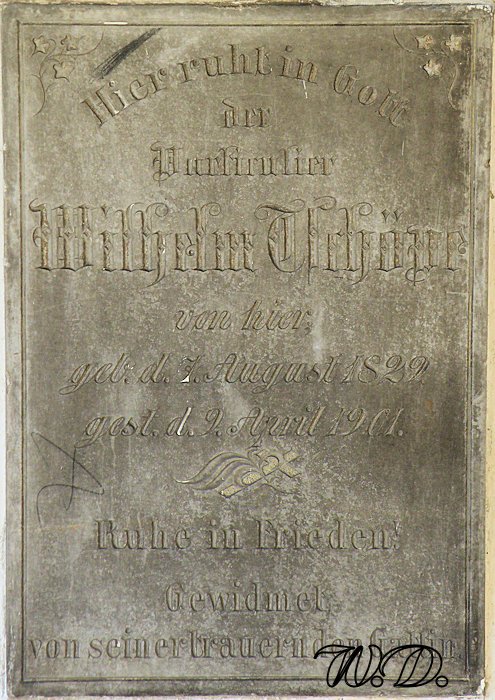 Hier ruht in Gott
der
Partikulier
Wilhelm Tschöpe
von hier,
geb. d. 7. August 1822
gest. d. 9. April 1901.
Ruhe in Frieden!
Gewidmet,
von seiner trauernden Gattin.
W. D.